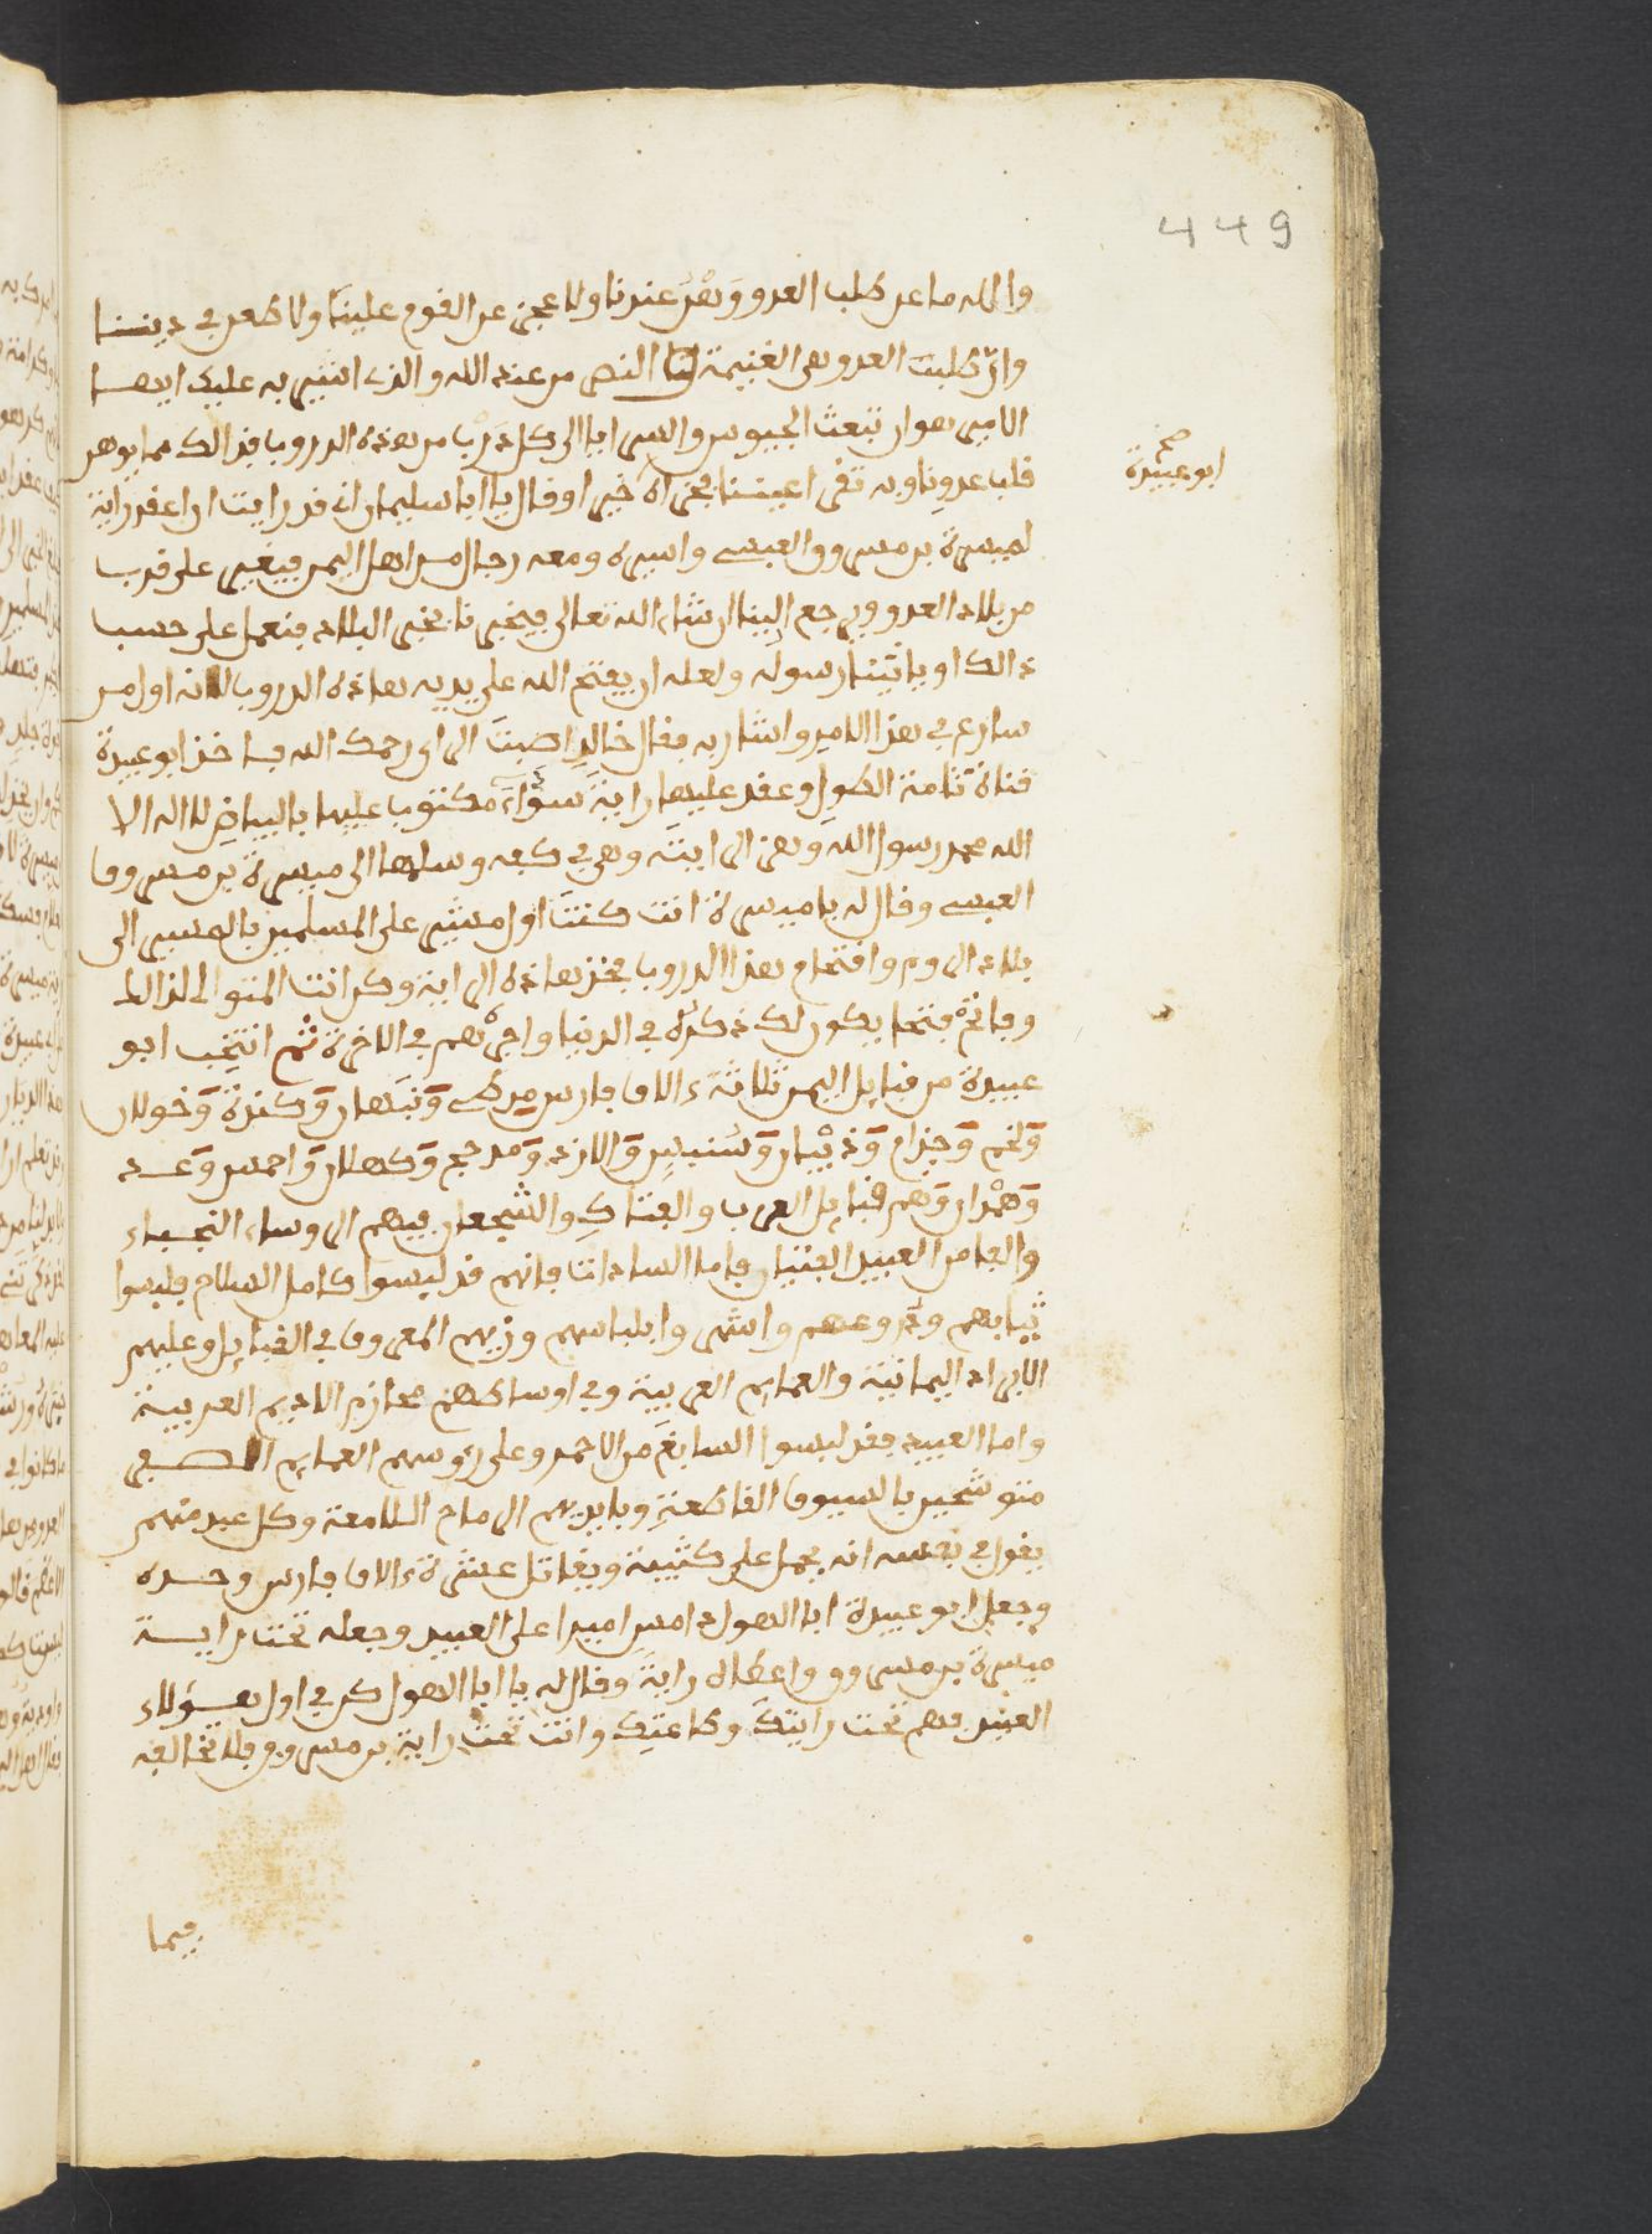 449
والله ما عن طلب العدو وَهْنَ عندنا ولا عجز عن القوم علينا ولا طعن في ديننا
وان طلبت العدو هي الغنيمة لنا النصر من عند الله والذى اشير به عليك ايها
الامير هو ان تبعث الجيوش والسرايا الى كل دَرْب من هذه الدروب فذالك مما يوهن
قلب عدونا وبه تقر اعيننا فجزاه خيرا وقال يا ابا سليمان انه قد رايت ان اعقد راية
ابو عبيدة صح
لميسرة بن مسروق العبسي واسيره ومعه رجال من اهل اليمن فيغير على قرب
من بلاد العدو ويرجع الينا ان شاء الله تعالى فيخبرنا بخبر البلاد فنعمل على حسب
ذالك او ياتينا رسوله ولعله ان يفتح الله على يديه هاذه الدروب لانه اول من
سارع في هذا الامر واشار به فقال خالد اصبت الراى رحمك الله فاخذ ابو عبيدة
قناة تامة الطول وعقد عليها راية سوداء مكتوب عليها بالبياض لا اله الا
الله محمد رسول الله وهز الراية وهي في كفه وسلمها الى ميسرة بن مسروق
العبسي وقال له يا ميسرة انت كنت اول مشير على المسلمين بالمسير الى
بلاد الروم واقتحام هذا الدروب فخذ هاذه الراية وكن انت المتوالى لذالك
وفاتح فتحا يكون لك ذكره في الدنيا واجره في الاخرة ثم انتخب ابو
عبيدة من قبايل اليمن ثلاثة ءالاف فارس من طي ونبهان وكندة وخولان
ولخم وجذام وذبيان وسنبس والازد ومدحج وكهلان واحمس وعـد
وهمدان وهم قبايل العرب والفتاك والشجعان فيهم الروساء النجباء
والف من العبيد الفتيان فاما السادات فانهم قد لبسوا كامل السلاح فلبسوا
ثيابهم ودروعهم واشهروا بلباسهم وزيهم المعروف في القبايل وعليهم
الابراد اليمانية والعمايم العربية وفي اوساطهم محازم الاديم العربية
واما العبيد فقد لبسوا السابغ من الاحمر وعلى رءوسهم العمايم الصفر
متوشحين بالسيوف القاطعة وبايديهم الرماح اللامعة وكل عبد منهم
يقول في نفسه انه يحمل على كثيبة ويقاتل عشرة ءالاف فارس وحده
وجعل ابو عبيدة ابا الهول دامس اميرا على العبيد وجعله تحت راية
ميسرة بن مسروق واعطاه راية وقال له يا ابا الهول كن في اول هؤلاء
العبيد فهم تحت رايتك وطاعتك وانت تحت راية بن مسروق فلا تخالفه
فيما